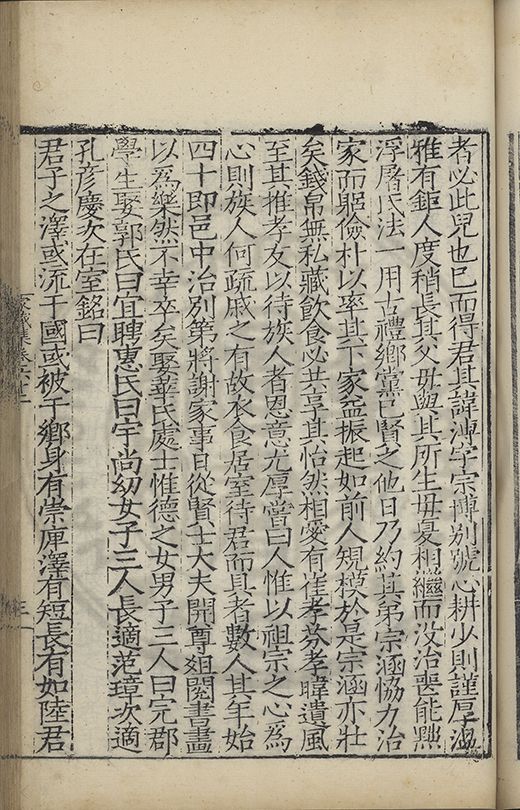 者必此兒也已而得君其諱溥字宗博別號心耕少則謹厚淹
雅有鉅人度稍長其父毋與其所生毋憂相繼而没治喪能黜
浮屠氏法一用古禮鄉黨已賢之他日乃約其弟宗涵協力治
家而躬儉朴以率其下家益振起如前人規模於是宗涵亦壯
矣錢帛無私藏飲食必共享其怡然相愛有崔孝芬孝暐遺風
至其推孝友以待族人者恩意尤厚嘗曰人惟以祖宗之心爲
心則族人何疏戚之有故衣食居室待君而具者數人其年始
四十即邑中治別第將謝家事日從賢士大夫開尊爼閱書畫
以爲樂然不幸卒矣娶華氏處士惟德之女男子三人曰完郡
學生娶郭氏曰宜聘惠氏曰宇尚幼女子三人長適范璋次適
孔彦慶次在室銘曰
君子之澤或流于國或被于鄉身有崇厓澤有短長有如陸君